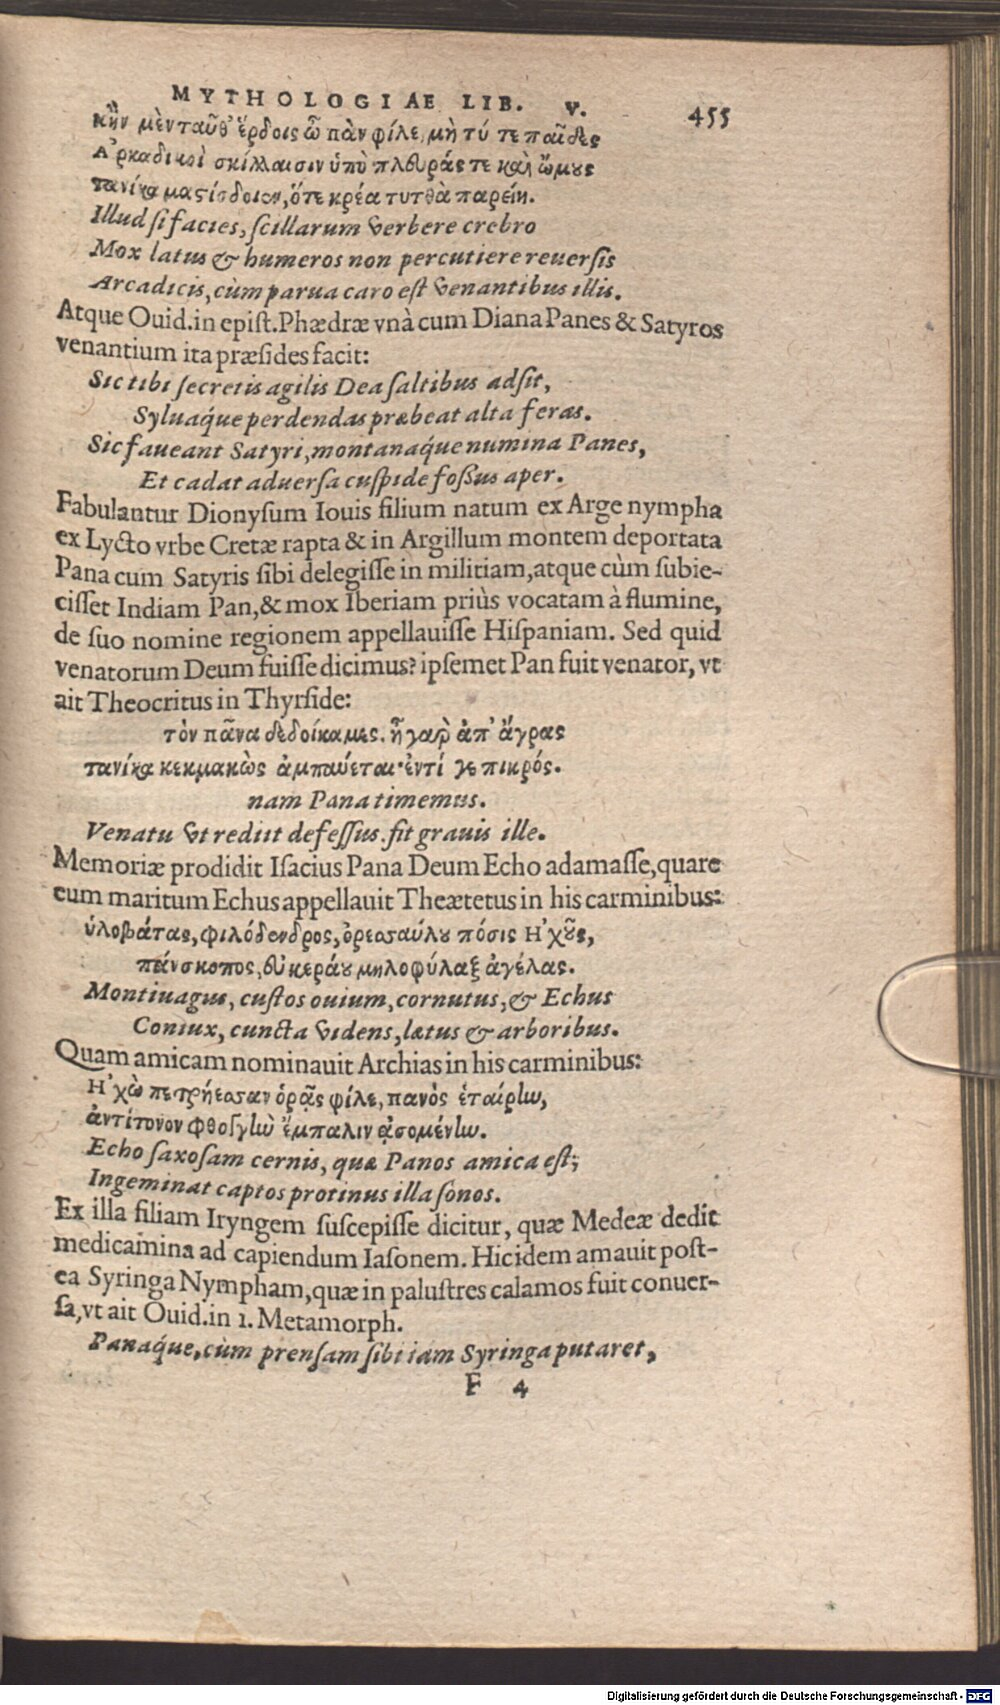 MYTHOLOGIAE LIB. V. 455
κἢν μὲν ταῦθ' ἕρδοις ὦ πὰν φίλε, μὴ τύ τε παῖδες
Α'ρκαδικοὶ σκίλλαισιν ὑπὸ πλευράς τε καὶ ὤμους
τανίκα μαστίσδοιεν, ὅτε κρέα τυτθὰ παρείη.
Illud si facies, scillarum verbere crebro
Mox latus & humeros non percutiere reuersis
Arcadicis, cùm parua caro est venantibus illis.
Atque Ouid. in epist. Phædræ vnà cum Diana Panes & Satyros
venantium ita præsides facit:
Sic tibi secretis agilis Dea saltibus adsit,
Syluaq́ue perdendas præbeat alta feras.
Sic faueant Satyri, montanaq́ue numina Panes,
Et cadat aduersa cuspide fossus aper.
Fabulantur Dionysum Iouis filium natum ex Arge nympha
ex Lycto vrbe Cretæ rapta & in Argillum montem deportata
Pana cum Satyris sibi delegisse in militiam, atque cùm subie-
cisset Indiam Pan, & mox Iberiam priùs vocatam à flumine,
de suo nomine regionem appellauisse Hispaniam. Sed quid
venatorum Deum fuisse dicimus? ipsemet Pan fuit venator, vt
ait Theocritus in Thyrside:
τὸν πᾶνα δεδοίκαμες. ἦ γαρ ἀπ' ἄγρας
τανίκα κεκμακὼς ἀμπαύεται· ἐντί γε πικρός.
nam Pana timemus.
Venatu vt rediit defessus. fit grauis ille.
Memoriæ prodidit Isacius Pana Deum Echo adamasse, quare
eum maritum Echus appellauit Theætetus in his carminibus:
ὑλοβάτας, φιλόδενδρος, ὀρεσσαύλου πόσις Η'χοῦς,
πάνσκοπος, εὐκεράου μηλοφύλαξ ἀγέλας.
Montiuagus, custos ouium, cornutus, & Echus
Coniux, cuncta videns, lætus & arboribus.
Quam amicam nominauit Archias in his carminibus:
Η'χὼ πετρήεσσαν ὁρᾷς φίλε, πανὸς ἑταίρην,
ἀντίτονον φθογγὴν ἔμπαλιν ᾀσομένην.
Echo saxosam cernis, quæ Panos amica est;
Ingeminat captos protinus illa sonos.
Ex illa filiam Iryngem suscepisse dicitur, quæ Medeæ dedit
medicamina ad capiendum Iasonem. Hic idem amauit post-
ea Syringa Nympham, quæ in palustres calamos fuit conuer-
sa, vt ait Ouid. in 1. Metamorph.
Panaq́ue, cùm prensam sibi iam Syringa putaret,
F 4
Digitalisierung gefördert durch die Deutsche Forschungsgemeinschaft - DFG